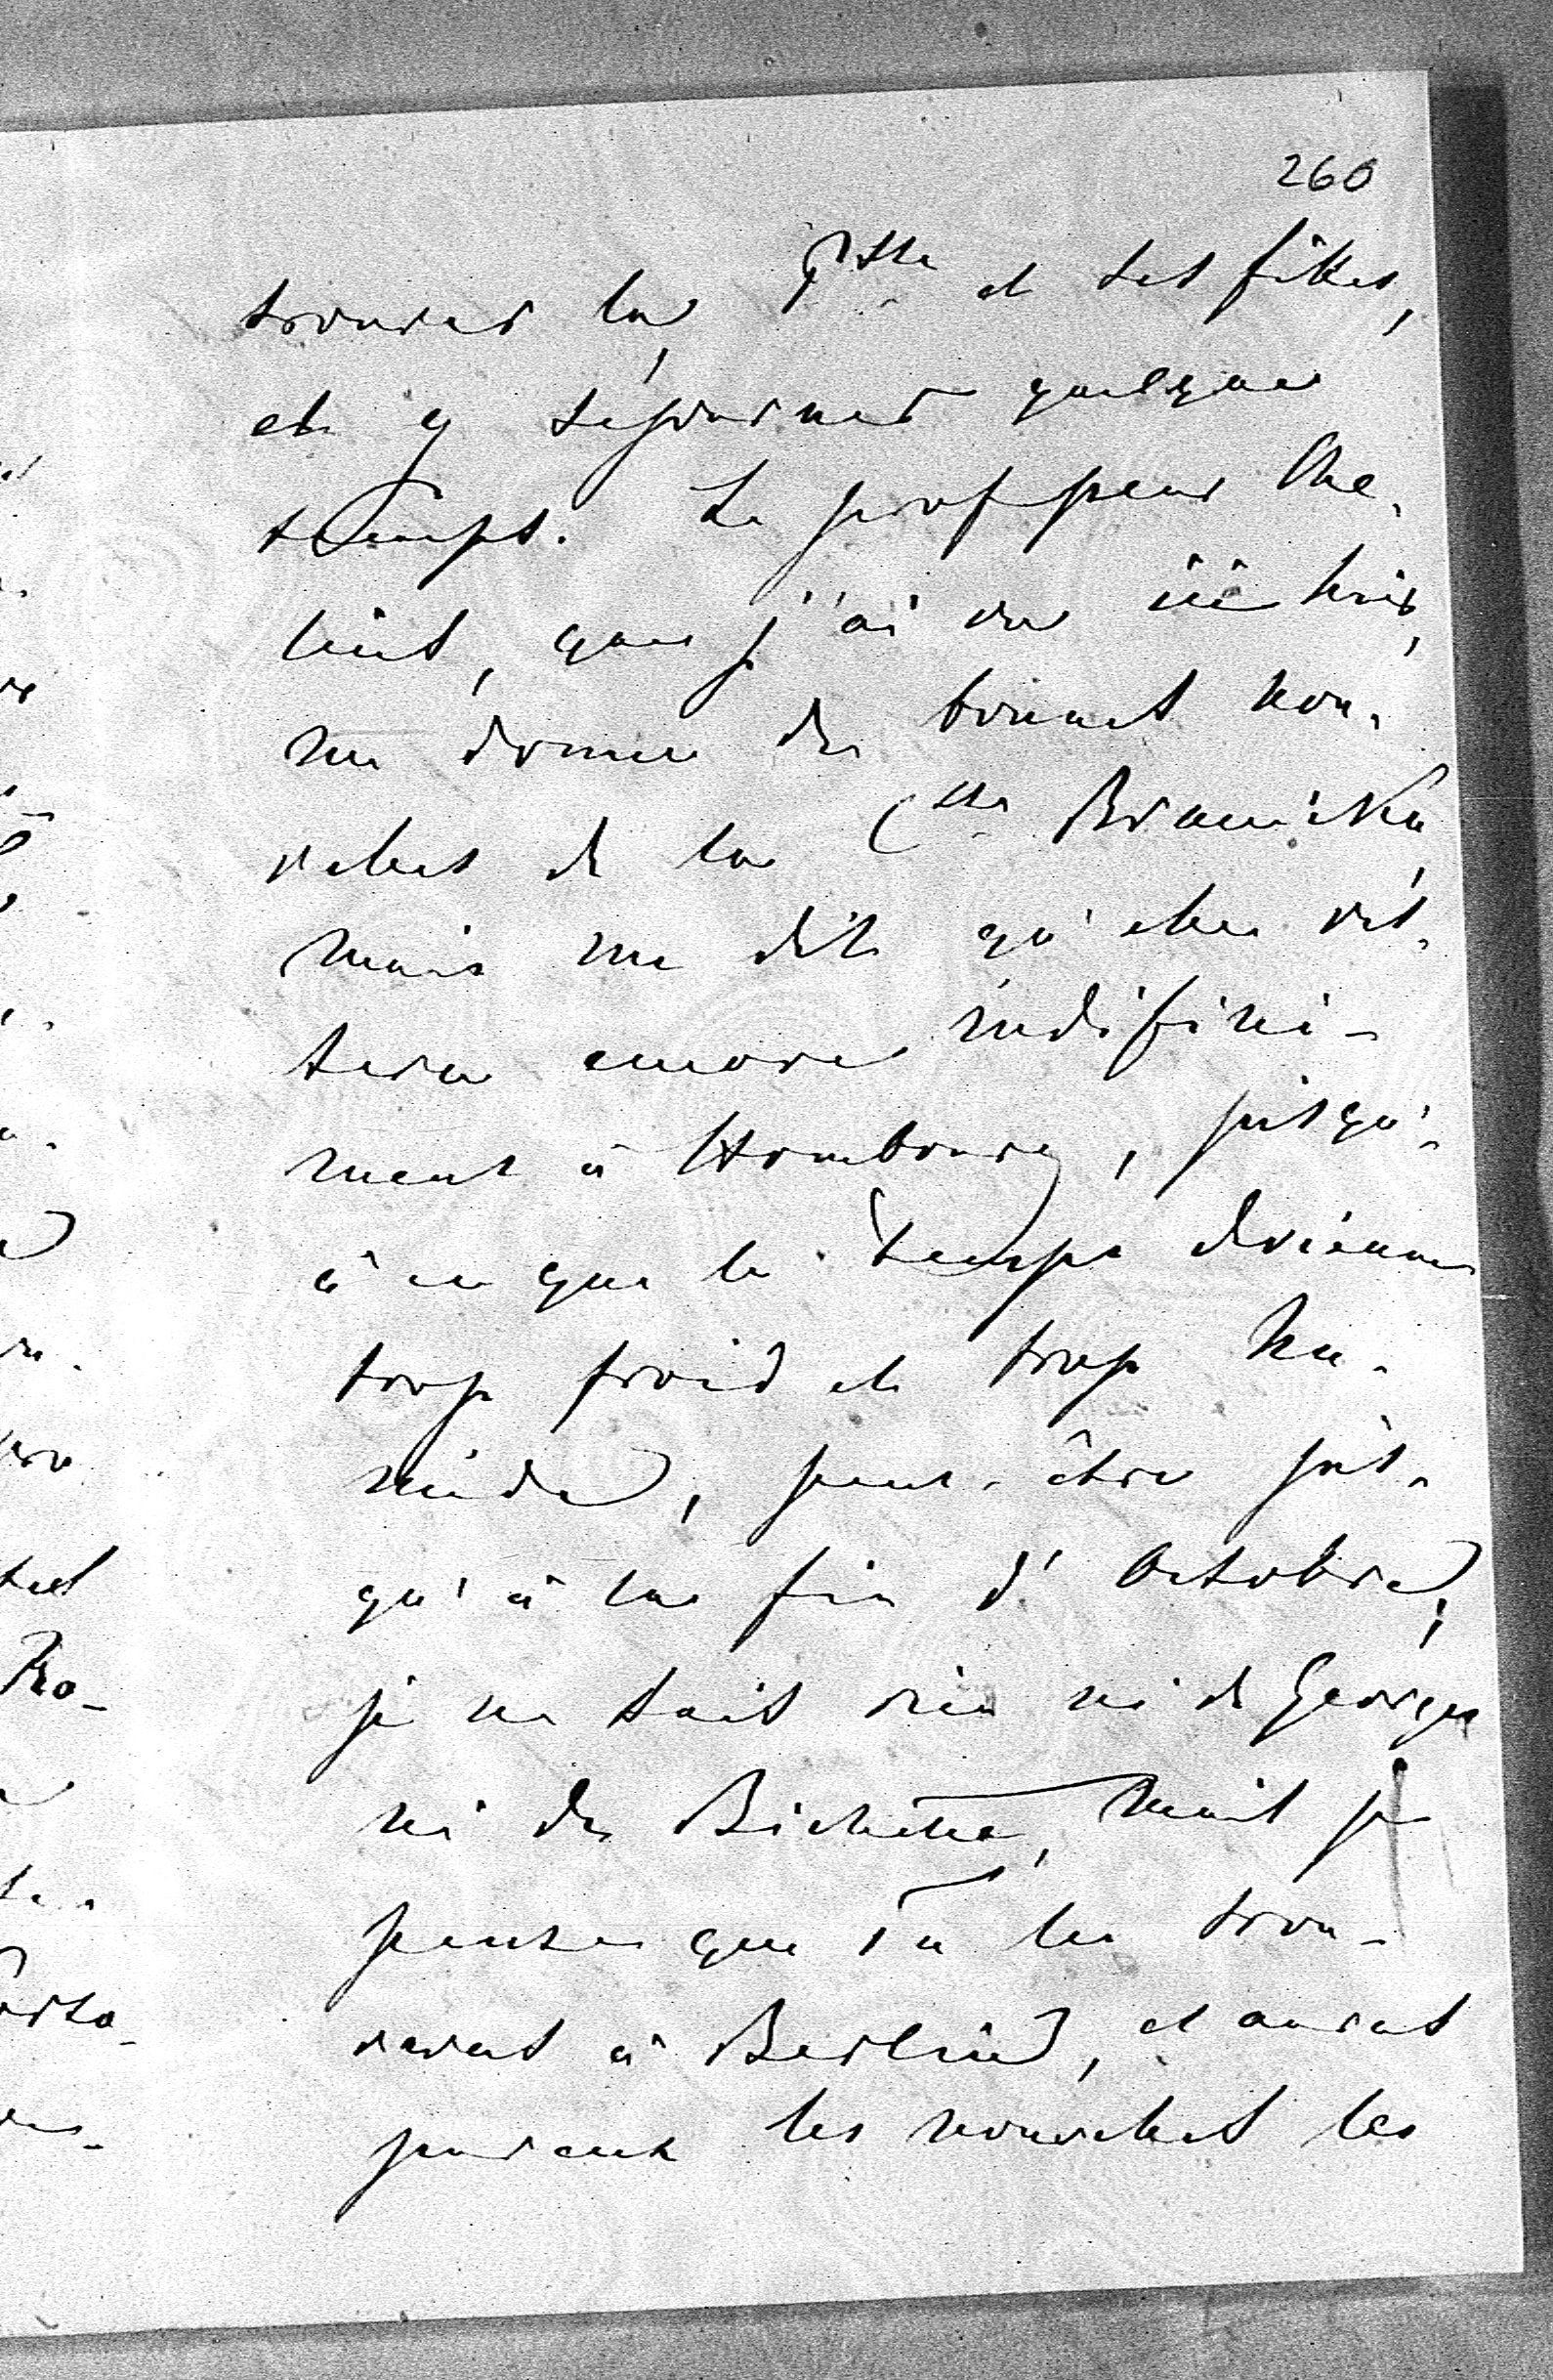 260
trouver la Psse et ses filles,
et y séjourner quelque
temps. Le professeur Che-
lius, que j'ai vu ici hier,
me donne de bonnes nou-
velles de la Csse Branicka,
mais me dit qu'elle res-
tera encore indéfini-
ment à Hombourg, jusqu'-
à ce que le temps devienne
trop froid et trop hu-
mide, peut-être jus-
qu'à la fin d'Octobre,
je ne sais rien ni de Georges
ni de Bichette, mais je
pense que Tu les trou-
veras à Berlin, et auras
par eux les nouvelles les